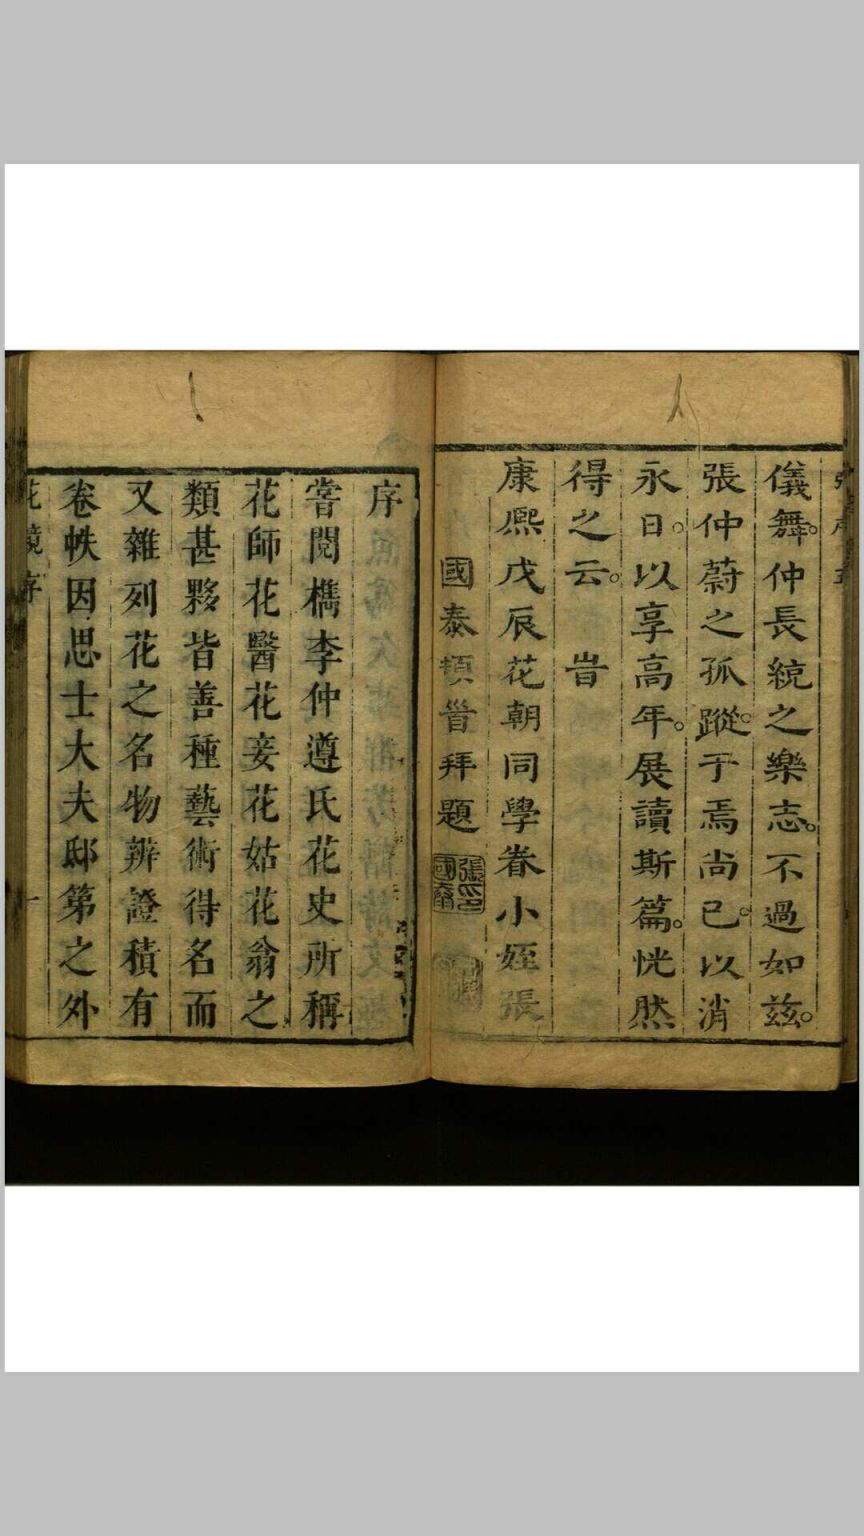 儀舞。仲長統之樂志。不過如茲。
張仲蔚之孤蹤。于焉尚已。以消
永日。以享高年。展讀斯篇。恍然
得之云。
旹
康熈戊辰花朝同學眷小姪張
國泰頓首拜題
序
嘗閱檇李仲遵氏花史所稱
花師花醫花妾花姑花翁之
類甚夥皆善種藝術得名而
又雜列花之名物辨證積有
卷帙因思士大夫邸第之外
花鏡序
一